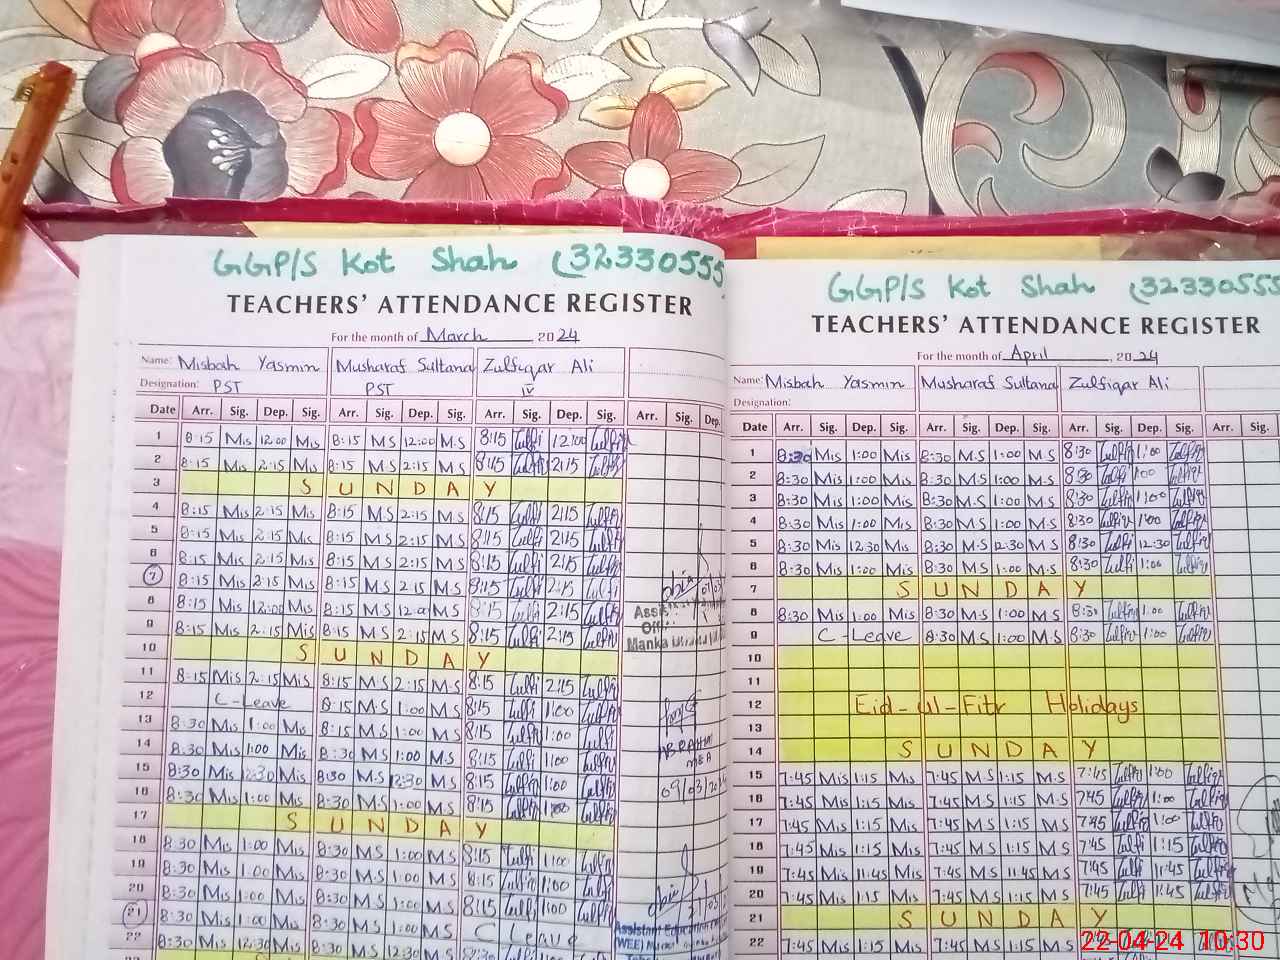 GGP/S Kot Shah (32330555
TEACHERS' ATTENDANCE REGISTER
For the month of March, 2024
Name: Misbah Yasmin Musharaf Sultana Zulfiqar Ali
Designation: PST PST IV
Date Arr. Sig. Dep. Sig. Arr. Sig. Dep. Sig. Arr. Sig. Dep. Sig. Arr. Sig. Dep.
1 8:15 Mis 12:00 Mis 8:15 M S 12:00 M.S 8:15 Zulfi 12:00 Zulfiqr
2 8:15 Mis 2:15 Mis 8:15 M.S 2:15 M.S 8:15 Zulfi 2:15 Zulfi
3 SUNDAY
4 8:15 Mis 2:15 Mis 8:15 M.S 2:15 M S 8:15 Zulfi 2:15 Zulfi
5 8:15 Mis 2:15 Mis 8:15 M.S 2:15 M S 8:15 Zulfi 2:15 Zulfi
6 8:15 Mis 2:15 Mis 8:15 M.S 2:15 M S 8:15 Zulfi 2:15 Zulfi
7 8:15 Mis 2:15 Mis 8:15 M S 2:15 M S 8:15 Zulfi 2:15 Zulfi
8 8:15 Mis 12:00 Mis 8:15 M S 12:00 M S 8:15 Zulfi 2:15 Zulfi
9 8:15 Mis 2:15 Mis 8:15 M S 2:15 M S 8:15 Zulfi 2:15 Zulfi
10 SUNDAY
11 8:15 Mis 2:15 Mis 8:15 M S 2:15 M.S 8:15 Zulfi 2:15 Zulfi
12 C-Leave 8:15 M.S 1:00 M S 8:15 Zulfi 1:00 Zulfi
13 8:30 Mis 1:00 Mis 8:15 M S 1:00 M S 8:15 Zulfi 1:00 Zulfi
14 8:30 Mis 1:00 Mis 8:30 M S 1:00 M.S 8:15 Zulfi 1:00 Zulfi
15 8:30 Mis 12:30 Mis 8:30 M.S 12:30 M S 8:15 Zulfi 1:00 Zulfi
16 8:30 Mis 1:00 Mis 8:30 M S 1:00 M S 8:15 Zulfi 1:00 Zulfi
17 SUNDAY
18 8:30 Mis 1:00 Mis 8:30 M.S 1:00 M S 8:15 Zulfi 1:00 Zulfi
19 8:30 Mis 1:00 Mis 8:30 M.S 1:00 M S 8:15 Zulfi 1:00 Zulfi
20 8:30 Mis 1:00 Mis 8:30 M S 1:00 M S 8:15 Zulfi 1:00 Zulfi
21 8:30 Mis 1:00 Mis 8:30 M S 1:00 M S C Leave
22 8:30 Mis 12:30 Mis 8:30 M S 12:30 M S 8:30 Zulfi
Assistant Education
(WEE)
09/03/20
GGP/S Kot Shah (32330555
TEACHERS' ATTENDANCE REGISTER
For the month of April, 2024
Name: Misbah Yasmin Musharaf Sultana Zulfiqar Ali
Designation:
Date Arr. Sig. Dep. Sig. Arr. Sig. Dep. Sig. Arr. Sig. Dep. Sig. Arr. Sig.
1 8:30 Mis 1:00 Mis 8:30 M S 1:00 M S 8:30 Zulfiqr 1:00 Zulfiqr
2 8:30 Mis 1:00 Mis 8:30 M S 1:00 M S 8:30 Zulfi 1:00 Zulfiqr
3 8:30 Mis 1:00 Mis 8:30 M.S 1:00 M S 8:30 Zulfiqr 1:00 Zulfiqr
4 8:30 Mis 1:00 Mis 8:30 M S 1:00 M S 8:30 Zulfiqr 1:00 Zulfiqr
5 8:30 Mis 12:30 Mis 8:30 M.S 12:30 M S 8:30 Zulfiqr 12:30 Zulfiqr
6 8:30 Mis 1:00 Mis 8:30 M.S 1:00 M S 8:30 Zulfi 1:00 Zulfiqr
7 SUNDAY
8 8:30 Mis 1:00 Mis 8:30 M.S 1:00 M S 8:30 Zulfiqr 1:00 Zulfiqr
9 C-Leave 8:30 M S 1:00 M S 8:30 Zulfiqr 1:00 Zulfiqr
10
11
12 Eid-ul-Fitr Holidays
13
14 SUNDAY
15 7:45 Mis 1:15 Mis 7:45 M S 1:15 M.S 7:45 Zulfiqr 1:00 Zulfiqr
16 7:45 Mis 1:15 Mis 7:45 M S 1:15 M S 7:45 Zulfiqr 1:00 Zulfiqr
17 7:45 Mis 1:15 Mis 7:45 M S 1:15 M S 7:45 Zulfiqr 1:00 Zulfiqr
18 7:45 Mis 1:15 Mis 7:45 M S 1:15 M S 7:45 Zulfi 1:15 Zulfiqr
19 7:45 Mis 11:45 Mis 7:45 M S 11:45 M S 7:45 Zulfi 11:45 Zulfiqr
20 7:45 Mis 1:15 Mis 7:45 M S 1:15 M S 7:45 Zulfi 11:45 Zulfiqr
21 SUNDAY
22 7:45 Mis 1:15 Mis 7:45 M S 1:15 M S 7:45
22-04-24 10:30